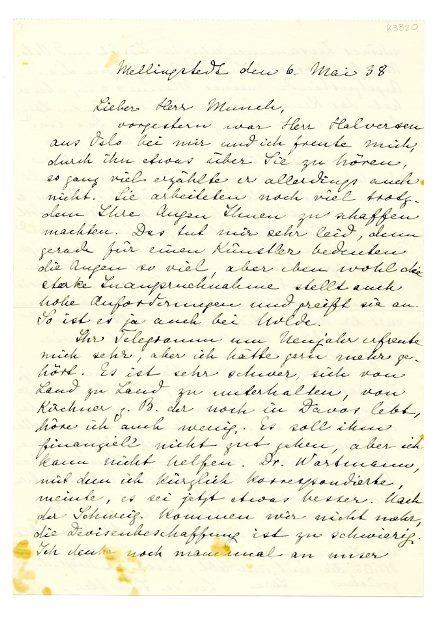 K3320
Mellingstedt den 6. Mai 38
Lieber Herr Munch,
vorgestern war Herr Halversen
aus Oslo bei mir und ich freute mich,
durch ihn etwas über Sie zu hören,
so ganz viel erzählte er allerdings auch
nicht. Sie arbeiteten noch viel trotz-
dem Ihre Augen Ihnen zu schaffen
machten. Das tut mir sehr leid, denn
gerade für einen Künstler bedeuten
die Augen so viel, aber eben wohl die
starke Inanspruchnahme stellt auch
hohe Anforderungen und greift sie an.
So ist es ja auch bei Nolde.
Ihr Telegramm um Neujahr erfreute
mich sehr, aber ich hätte gern mehr ge-
hört. Es ist sehr schwer, sich von
Land zu Land zu unterhalten, von
Kirchner z. B. der noch in Davos lebt,
höre ich auch wenig. Es soll ihm
finanziell nicht gut gehen, aber ich
kann nicht helfen. Dr. Wartmann,
mit dem ich kürzlich korrespondierte,
meinte, es sei jetzt etwas besser. Nach
der Schweiz kommen wir nicht mehr,
die Devisenbeschaffung ist zu schwierig.
Ich denke noch manchmal an unser